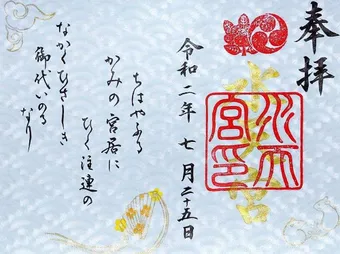 奉拝
水天宮
水天
宮印
令和二年七月二十五日
ちはやふる
かみの宮居に
ひく注連の
なかくひさしき
御代いのる
なり